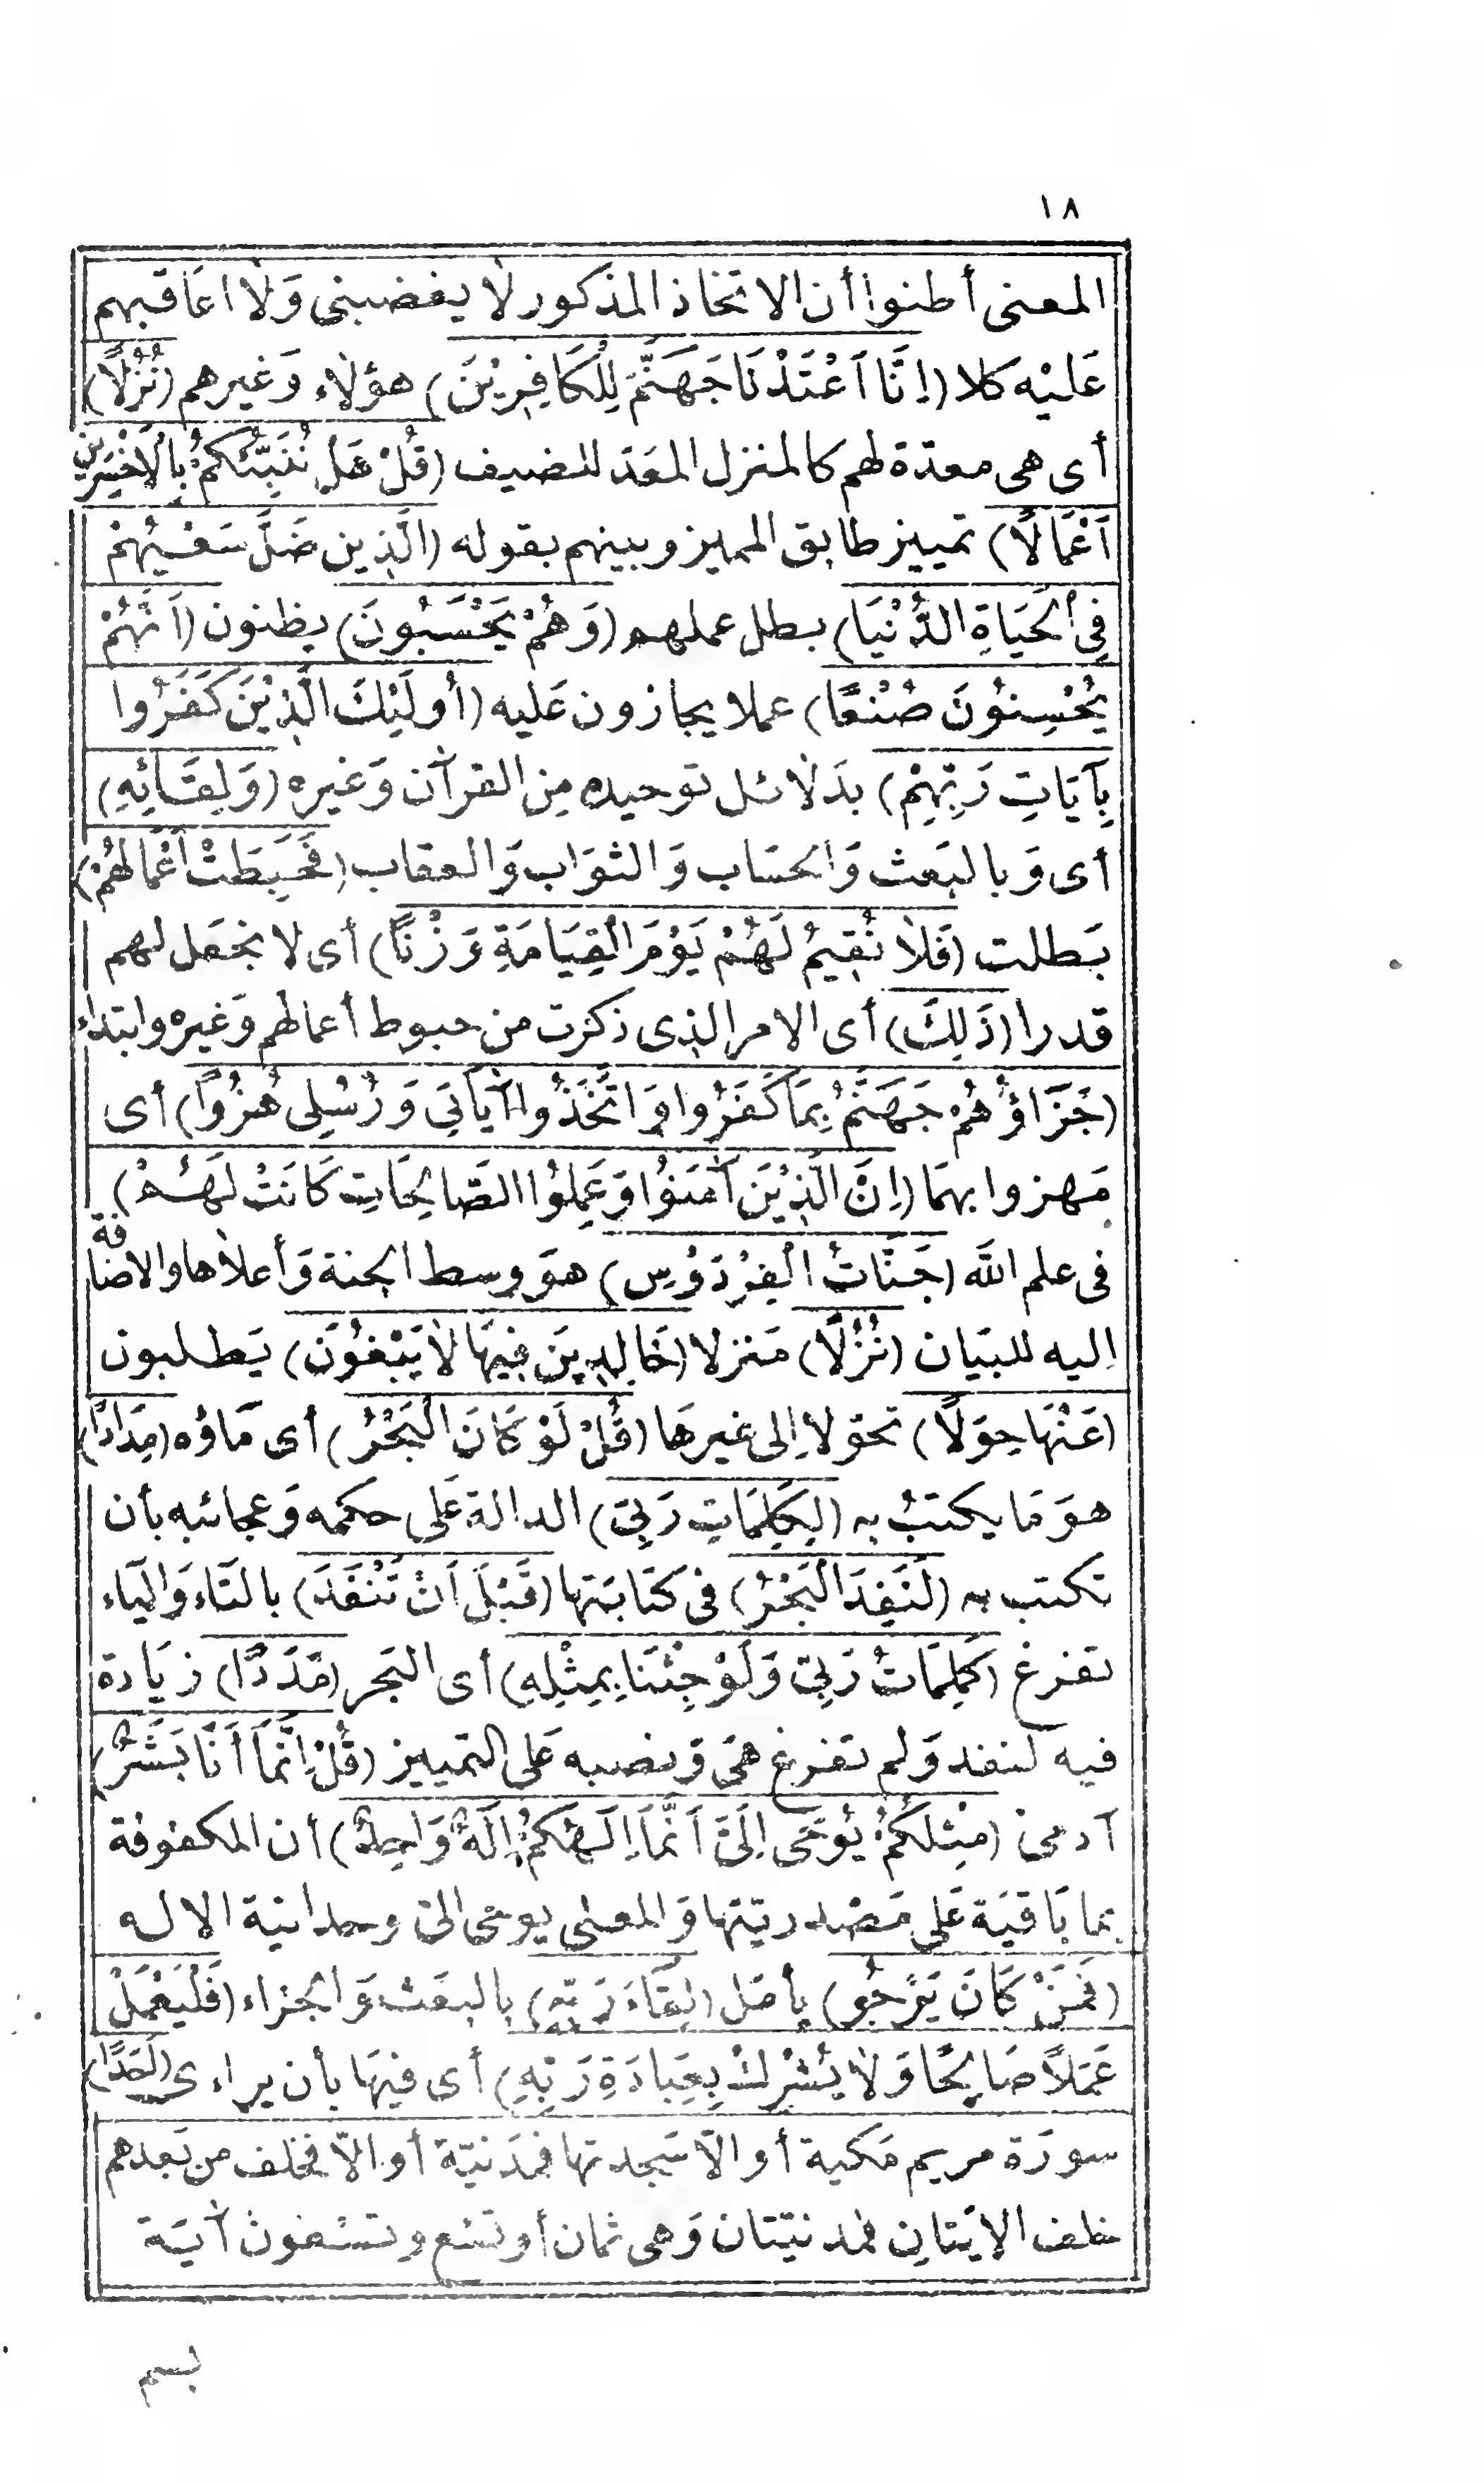 ١٨
المعنى أظنوا أن الاتخاذ المذكور لا يغضبنى وَلا اعَاقبهم
عَليْه كلا (اِنَّا اَعْتَدْنَا جَهَنَّمَ لِلْكَافِرِيْنَ) هؤلاء وَغيرهم (نُزُلًا)
أى هى معدّة لهم كالمنزل المعَد للضيف (قُلْ هَلْ نُنَبِّئُكُمْ بِالْاَخْسَرِيْنَ
اَعْمَالًا) تمييز طابق المميز وبينهم بقوله (الَّذِين ضَلَّ سَعْيُهُمْ
فِى الْحَيَاةِ الدُّنْيَا) بطل عملهم (وَهُمْ يَحْسَبُونَ) يظنون (اَنَّهُمْ
يُحْسِنُوْنَ صُنْعًا) عملا يجازون عَليه (أُولَئِكَ الَّذِيْنَ كَفَرُوا
بِآيَاتِ رَبِّهِمْ) بدَلائل توحيده مِن القرآن وَغيره (وَلِقَائِهِ)
أى وَبالبَعث وَالحسَاب وَالثوَاب وَالعقاب (فَحَبِطَتْ اَعْمَالُهُمْ)
بَطلت (فَلَا نُقِيمُ لَهُمْ يَوْمَ الْقِيَامَةِ وَزْنًا) أى لا نجعَل لهم
قدرا (ذَلِكَ) أى الامر الذى ذكرت من حبوط أعمالهم وَغيره وابتداء
(جَزَاؤُهُمْ جَهَنَّمُ بِمَا كَفَرُوا وَاتَّخَذُوا آيَاتِى وَرُسُلِى هُزُوًا) أى
مَهزوا بهمَا (اِنَّ الَّذِيْنَ آمَنُوْا وَعَمِلُوْا الصَّالِحَاتِ كَانَتْ لَهُمْ)
فى علم الله (جَنَّاتُ الْفِرْدَوْسِ) هوَ وسط الجنة وَأعلاها والاضافة
اِليه للبيَان (نُزُلًا) مَنزلا (خَالِدِيْنَ فِيهَا لَا يَبْغُوْنَ) يَطلبون
(عَنْهَا حِوَلًا) تحوّلا اِلى غيرهَا (قُلْ لَوْ كَانَ الْبَحْرُ) أى مَاؤه (مِدَادًا)
هوَ مَا يكتبُ به (لِكَلِمَاتِ رَبِّى) الدالة عَلى حكمه وَعجائبه بأن
تكتب به (لَنَفِدَ الْبَحْرُ) فى كتابَتها (قَبْلَ اَنْ تَنْفَدَ) بالتَاء وَاليَاء
تفرغ (كَلِمَاتُ رَبِّى وَلَوْ جِئْنَا بِمِثْلِهِ) أى البَحر (مَدَدًا) زيَادة
فيه لنفد وَلم تفرغ هىَ وَنصبه عَلى التمييز (قُلْ اِنَّمَا أَنَا بَشَرٌ)
آدمىّ (مِثْلُكُمْ يُوْحَى اِلَىَّ اَنَّمَا اِلَهُكُمْ اِلَهٌ وَاحِدٌ) أن المكفوفة
بما بَاقيَة عَلى مَصْدريّتها وَالمعنى يوحَى الىّ وحدانية الاله
(فَمَنْ كَانَ يَرْجُو) يأمَل (لِقَاءَ رَبِّهِ) بالبَعث وَالجزاء (فَلْيَعْمَلْ
عَمَلًا صَالِحًا وَلَا يُشْرِكْ بِعِبَادَةِ رَبِّهِ) أى فيهَا بأن يراءى (اَحَدًا)
سورَة مريم مَكية أو الّا سَجدتها فمدَنيّة أو الّا فخلف من بَعدهم
خلف الايَتان فمدنيّتان وَهى ثمان أو تسْع وتسْعون آيَة
بسم